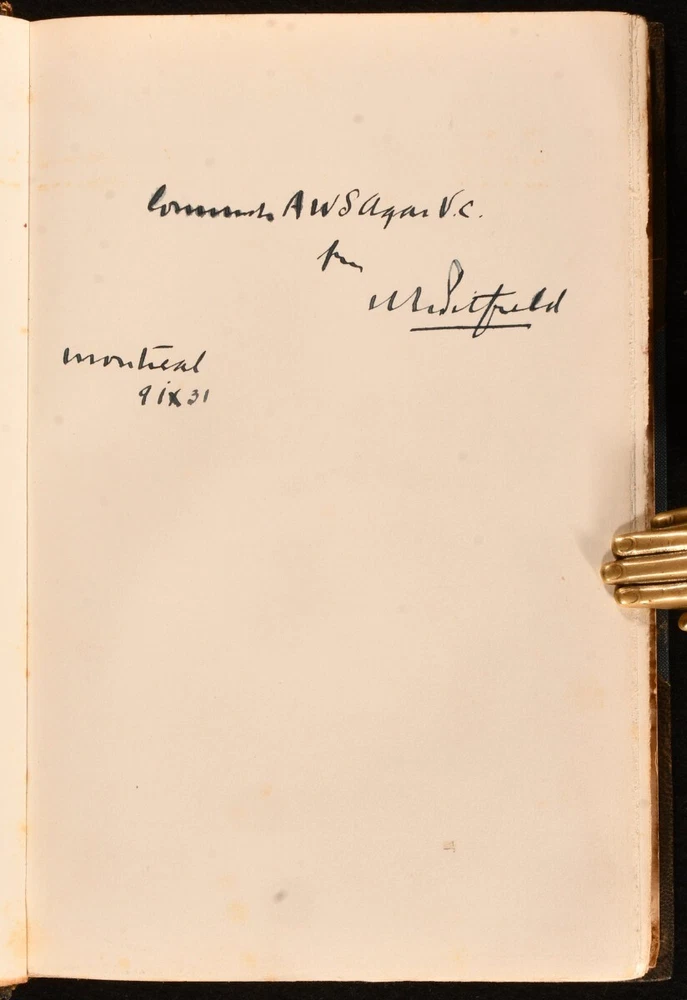 Commander A W S Agar V.C.
from
Montreal
9 ix 31